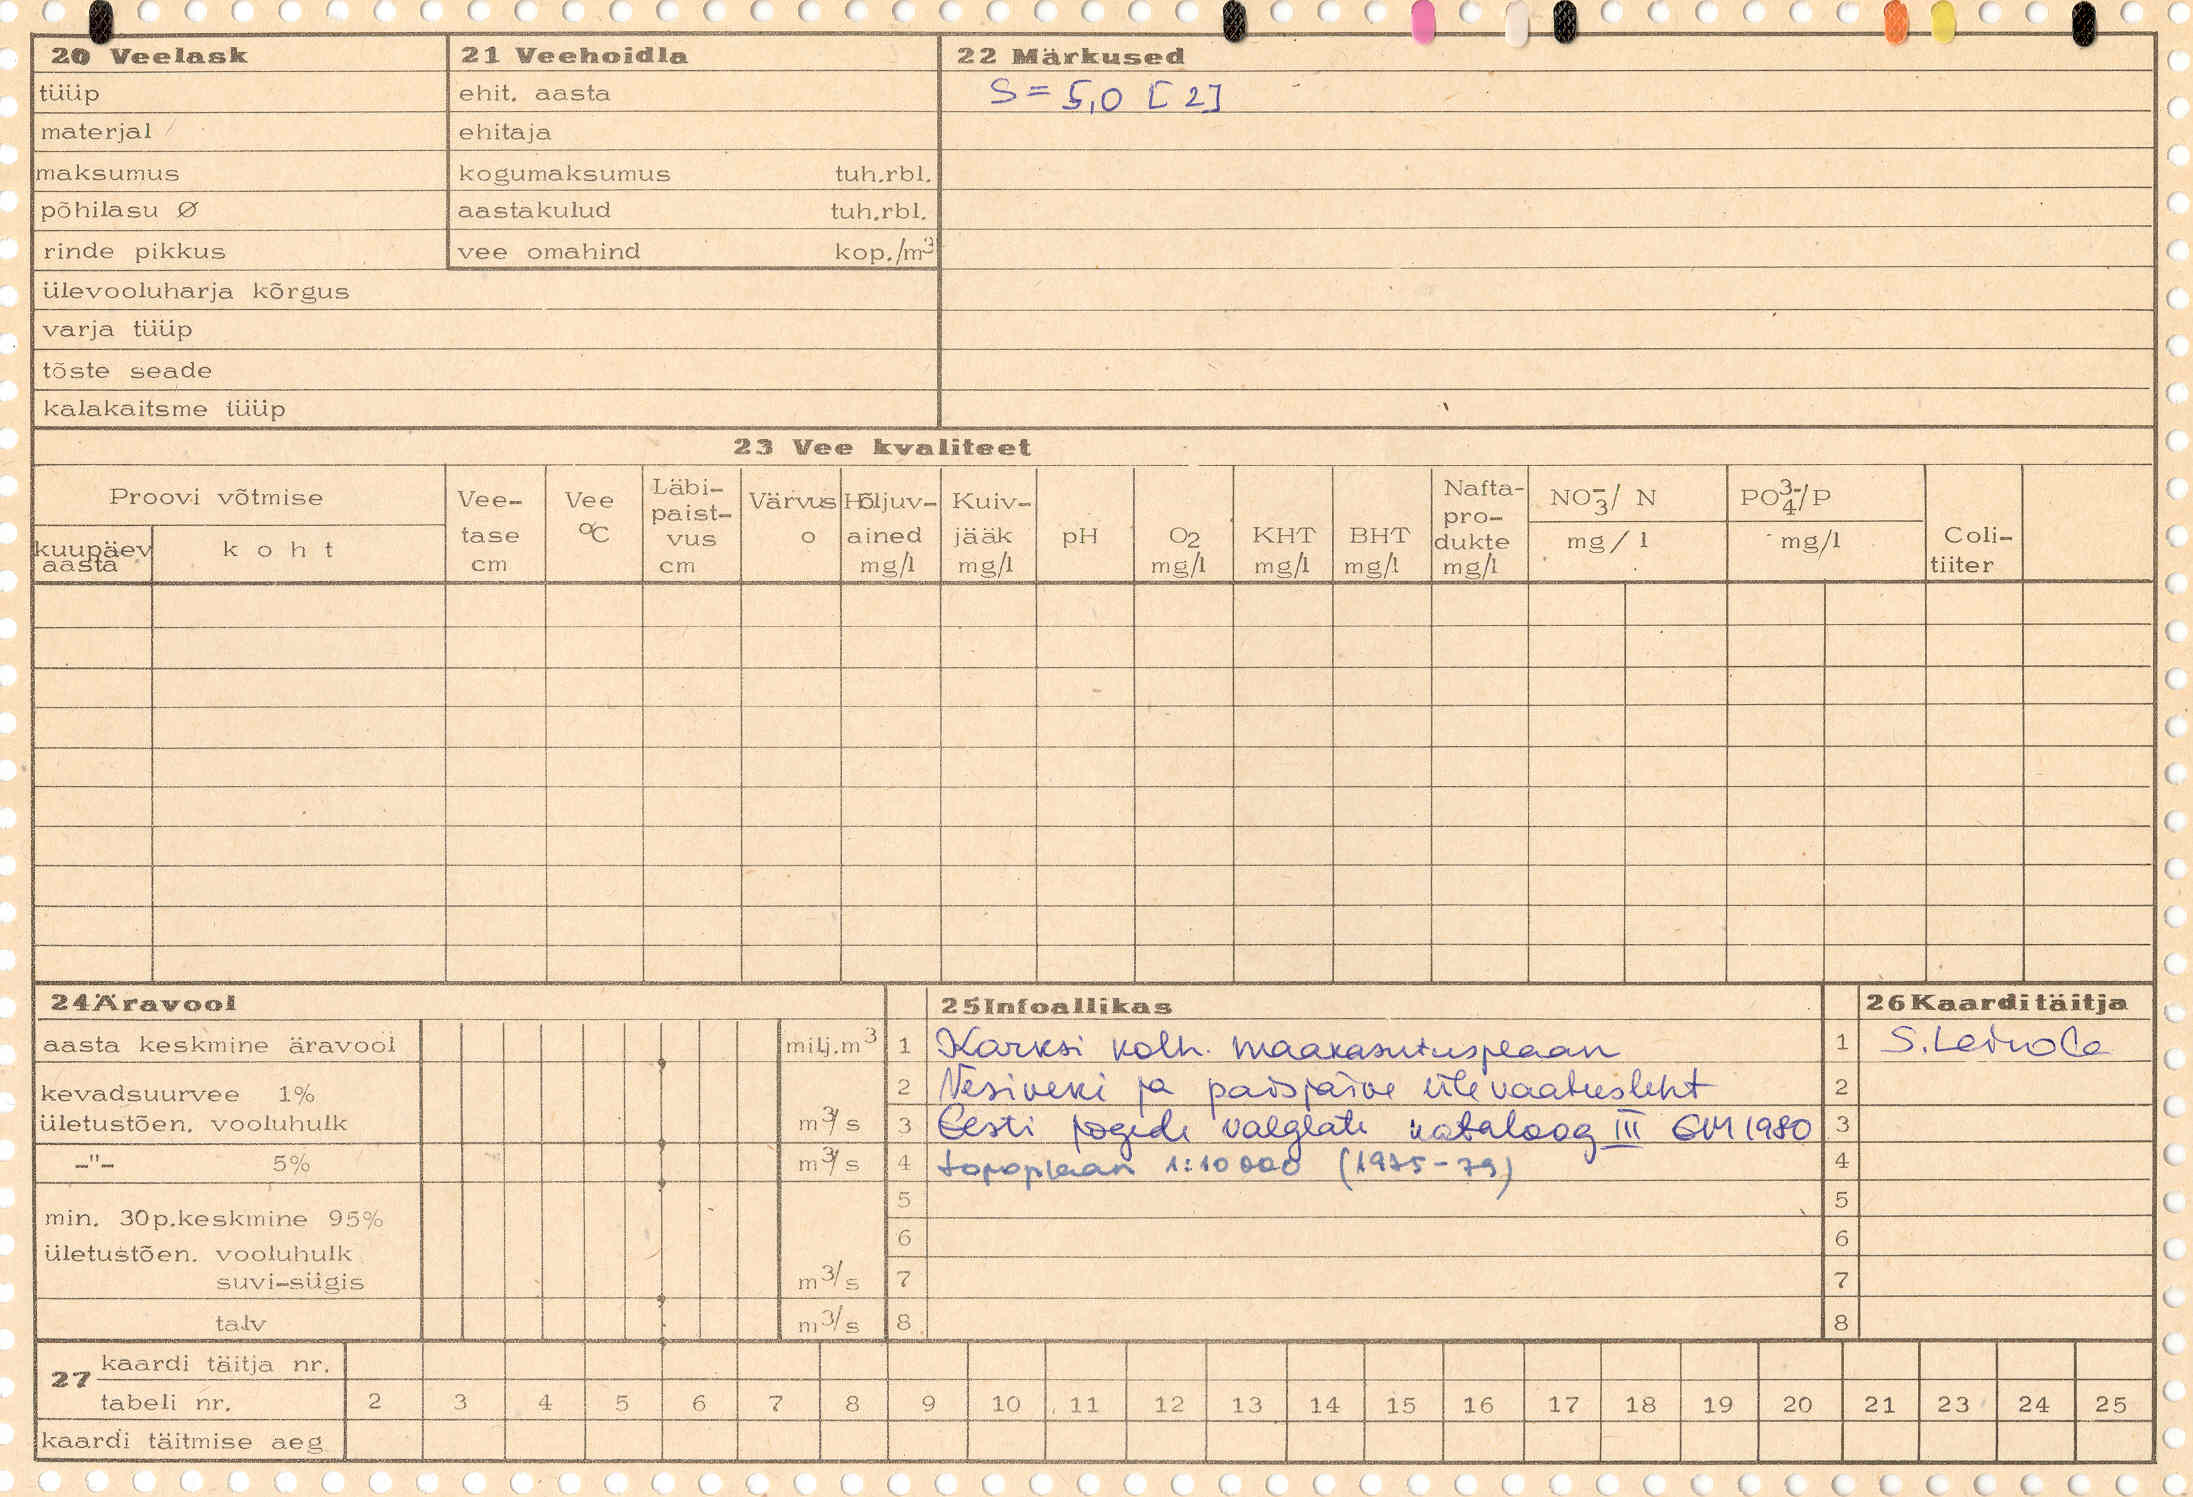 20 Veelask
tüüp
materjal
maksumus
põhilasu Ø
rinde pikkus
ülevooluharja kõrgus
varja tüüp
tõste seade
kalakaitsme tüüp
21 Veehoidla
ehit. aasta
ehitaja
kogumaksumus tuh.rbl.
aastakulud tuh.rbl.
vee omahind kop./m³
22 Märkused
S = 5,0 [2]
23 Vee kvaliteet
Proovi võtmise
kuupäev aasta
koht
Vee-
tase
cm
Vee
°C
Läbi-
paist-
vus
cm
Värvus
o
Hõljuv-
ained
mg/l
Kuiv-
jääk
mg/l
pH
O2
mg/l
KHT
mg/l
BHT
mg/l
Nafta-
pro-
dukte
mg/l
NO₃⁻/ N
mg/l
PO₄³⁻/P
mg/l
Coli-
tiiter
24 Äravool
aasta keskmine äravool milj.m³
kevadsuurvee 1%
ületustõen. vooluhulk m³/s
-"- 5% m³/s
min. 30p.keskmine 95%
ületustõen. vooluhulk
suvi-sügis m³/s
talv m³/s
25 Infoallikas
1 Karksi kolh. maakasutusplaan
2 Vesiveski ja paisjärve ülevaatusleht
3 Eesti jõgede valglate kataloog III EM 1980
4 topoplaan 1:10 000 (1975-79)
5
6
7
8
26 Kaardi täitja
1 S. Leinola
2
3
4
5
6
7
8
27
kaardi täitja nr.
tabeli nr. 2 3 4 5 6 7 8 9 10 11 12 13 14 15 16 17 18 19 20 21 23 24 25
kaardi täitmise aeg